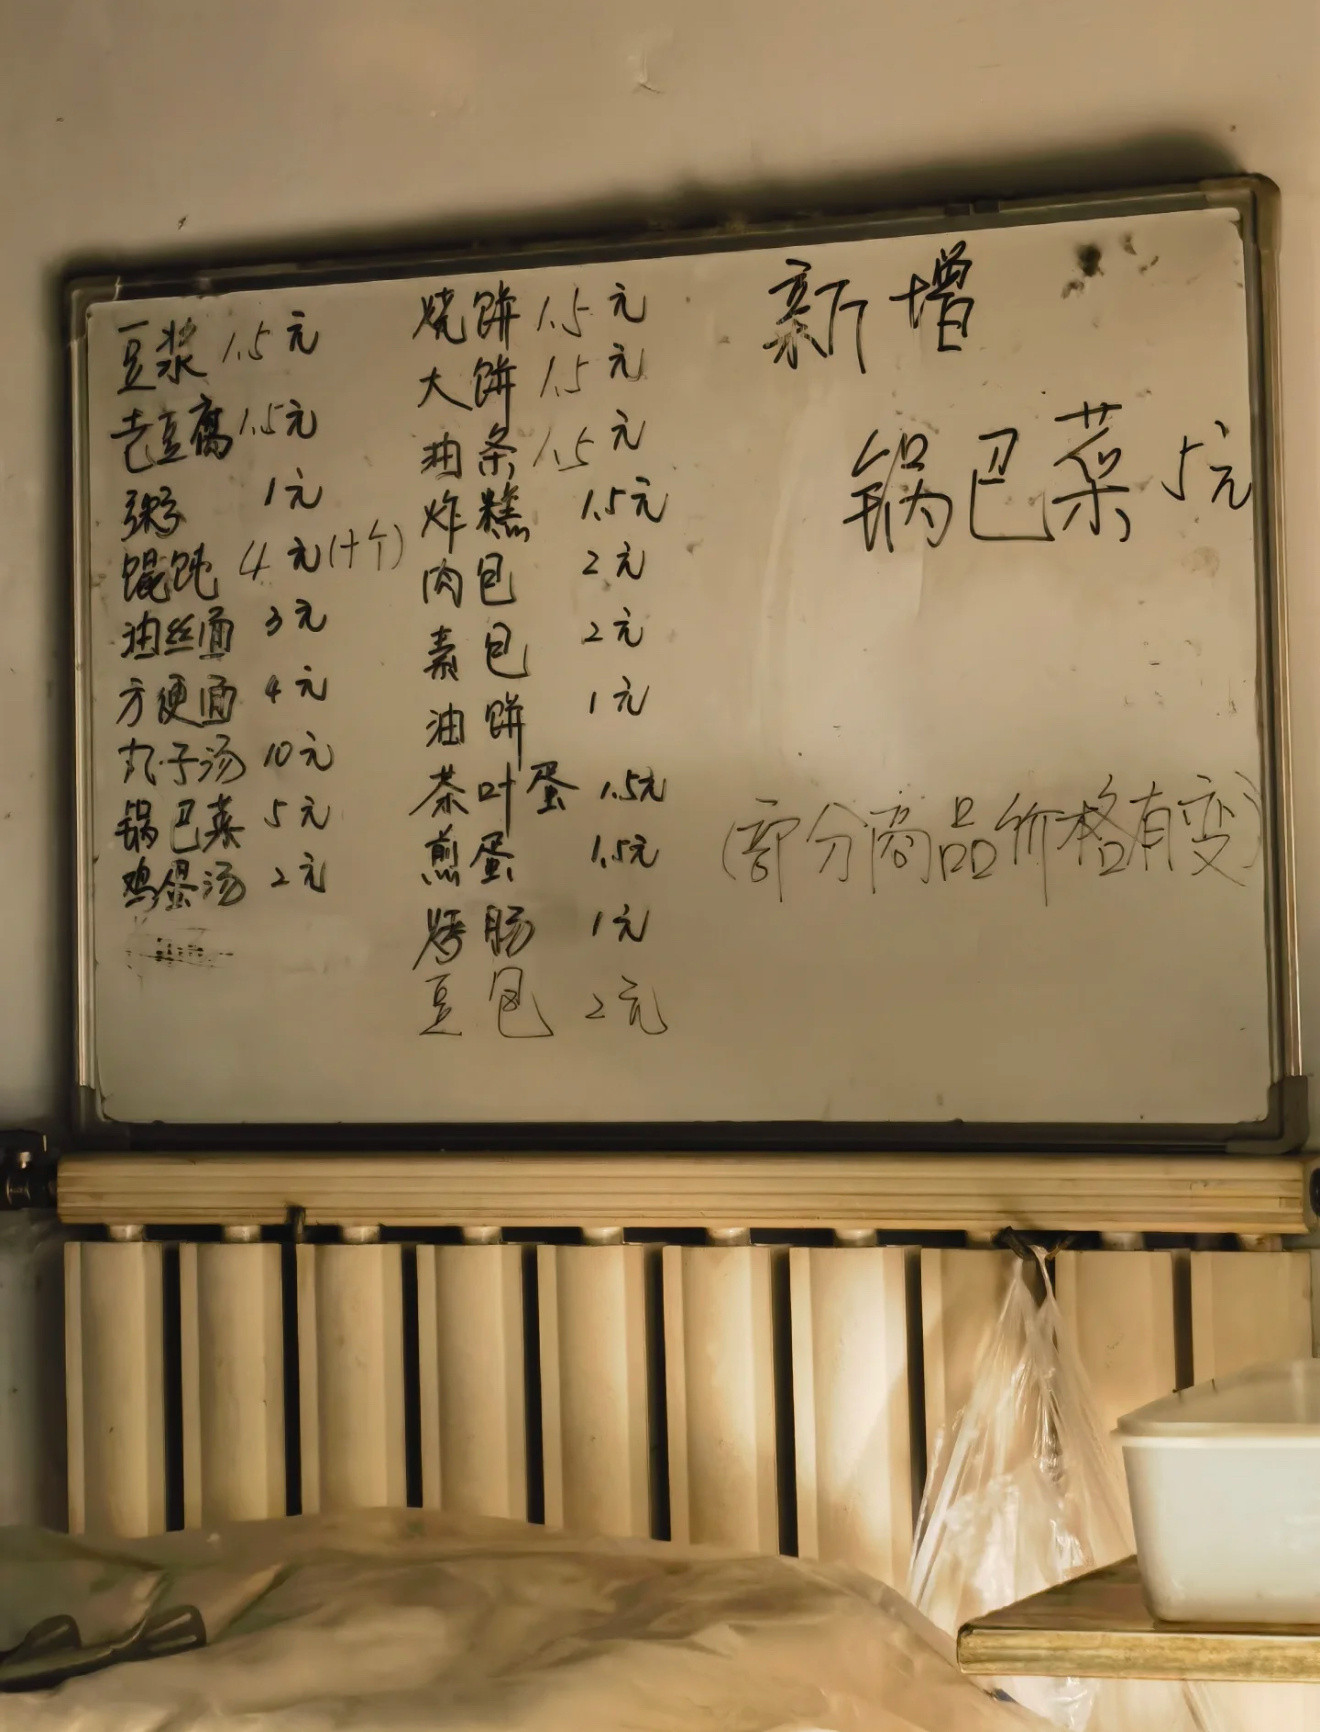 豆浆 1.5元
老豆腐 1.5元
粥 1元
馄饨 4元(十个)
油丝面 3元
方便面 4元
丸子汤 10元
锅巴菜 5元
鸡蛋汤 2元
烧饼 1.5元
大饼 1.5元
油条 1.5元
炸糕 1.5元
肉包 2元
素包 2元
油饼 1元
茶叶蛋 1.5元
煎蛋 1.5元
烤肠 1元
豆包 2元
新增
锅巴菜 5元
(部分商品价格有变)